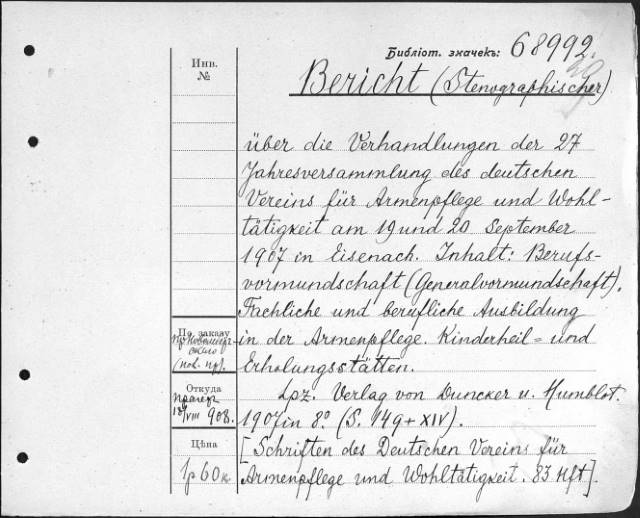 Библіот. значекъ: 68992.
Инв.
№
Bericht (Stenographischer)
über die Verhandlungen der 27
Jahresversammlung des deutschen
Vereins für Armenpflege und Wohl-
tätigkeit am 19 und 20 September
1907 in Eisenach. Inhalt: Berufs-
vormundschaft (Generalvormundschaft).
Fachliche und berufliche Ausbildung
in der Armenpflege. Kinderheil= und
Erholungsstätten.
Lpz. Verlag von Duncker u. Humblot.
1907 in 8° (S. 149 + XIV).
[Schriften des Deutschen Vereins für
Armenpflege und Wohltätigkeit. 83 Hft].
По заказу
Откуда
VIII 908.
Цѣна
1р 60к